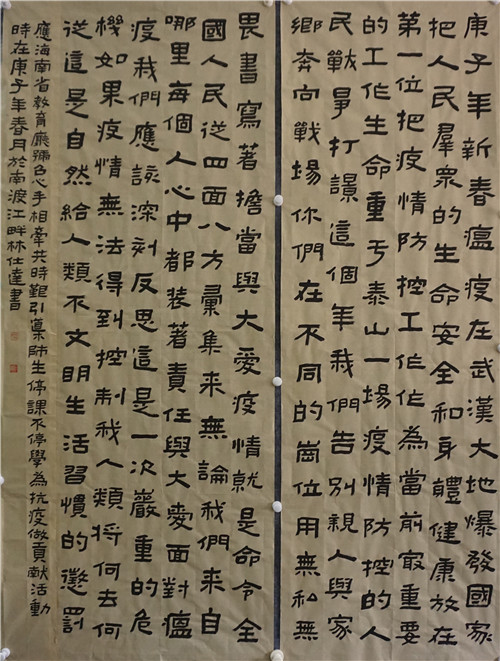 庚子年新春瘟疫在武漢大地爆發國家
把人民羣眾的生命安全和身體健康放在
第一位把疫情防控工作作為當前最重要
的工作生命重于泰山一場疫情防控的人
民戰爭打響這個年我們告別親人與家
鄉奔向戰場你們在不同的崗位用無私無
畏書寫著擔當與大愛疫情就是命令全
國人民從四面八方彙集來無論我們來自
哪里每個人心中都裝著責任與大愛面對瘟
疫我們應該深刻反思這是一次嚴重的危
機如果疫情無法得到控制我人類將何去何
從這是自然給人類不文明生活習慣的懲罰
應海南省教育廳心手相牽共時艱引導師生停課不停學為抗疫做貢獻活動
時在庚子年春月於南渡江畔林仕達書